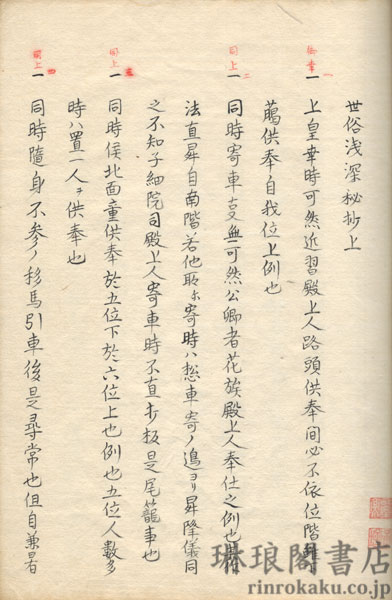 世俗浅深秘抄上
御幸一
一上皇幸時可然近習殿上人路頭供奉間必不依位階雖下
﨟供奉自我位上例也
同上二
一同時寄車事無可然公卿者花族殿上人奉仕之例也
法直昇自南階若他所ニ寄時ハ惣車寄ノ邊ヨリ昇降儀同
之不知子細院司殿上人寄車時不直打板是尾籠事也
同上三
一同時侯北面童供奉於五位下於六位上也例也五位人數多
時ハ置一人ヲ供奉也
同上四
一同時隨身不参ノ移馬引車後是尋常也但自兼
琳琅閣書店
rinrokaku.co.jp